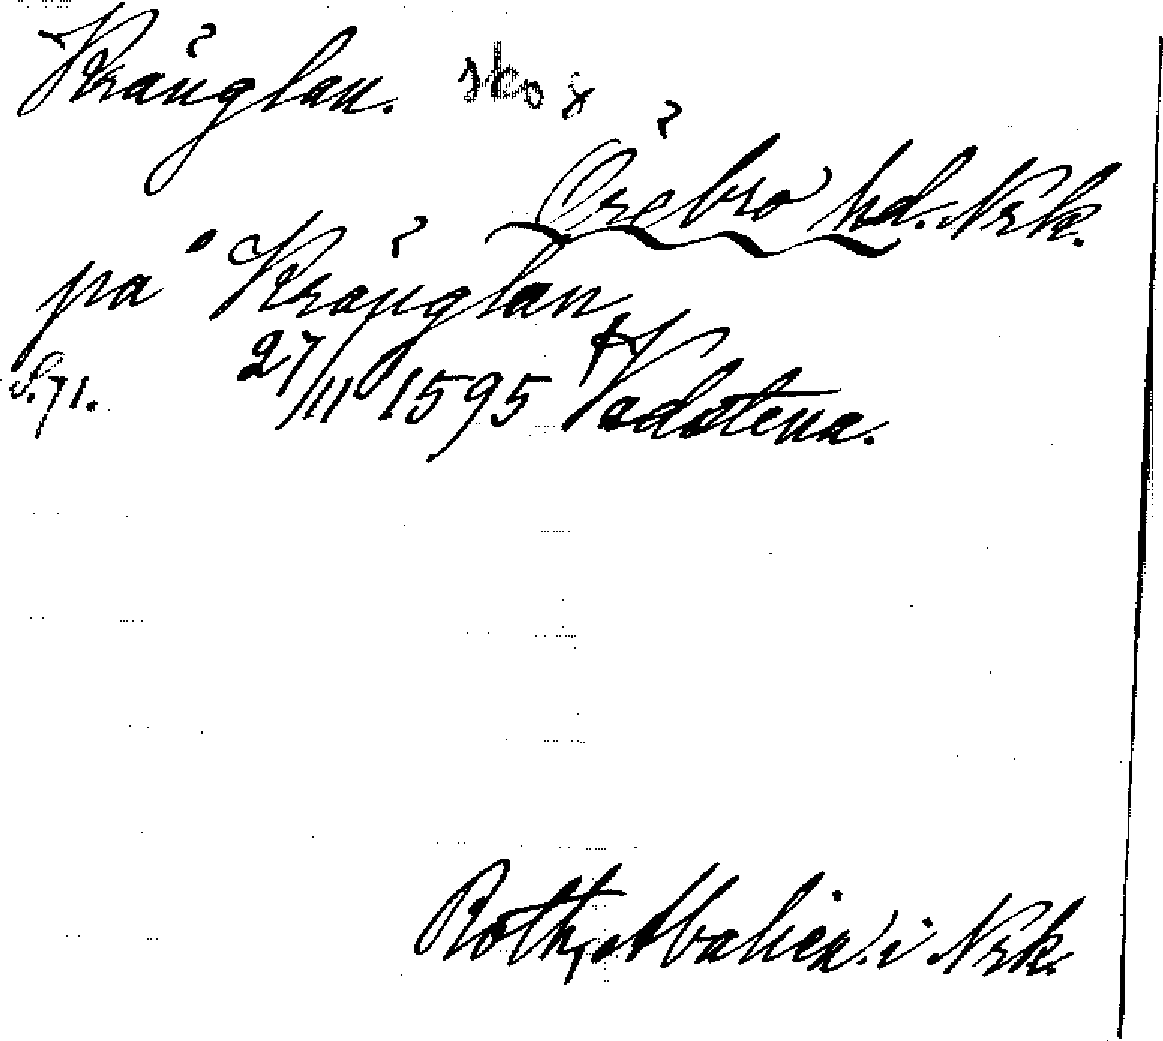 Kränglan. skog
Örebro hd. Nrk.
på Kränglan
S. 71. 27/11 1595 Vadstena.
Roth, Abalien. i Nrk.